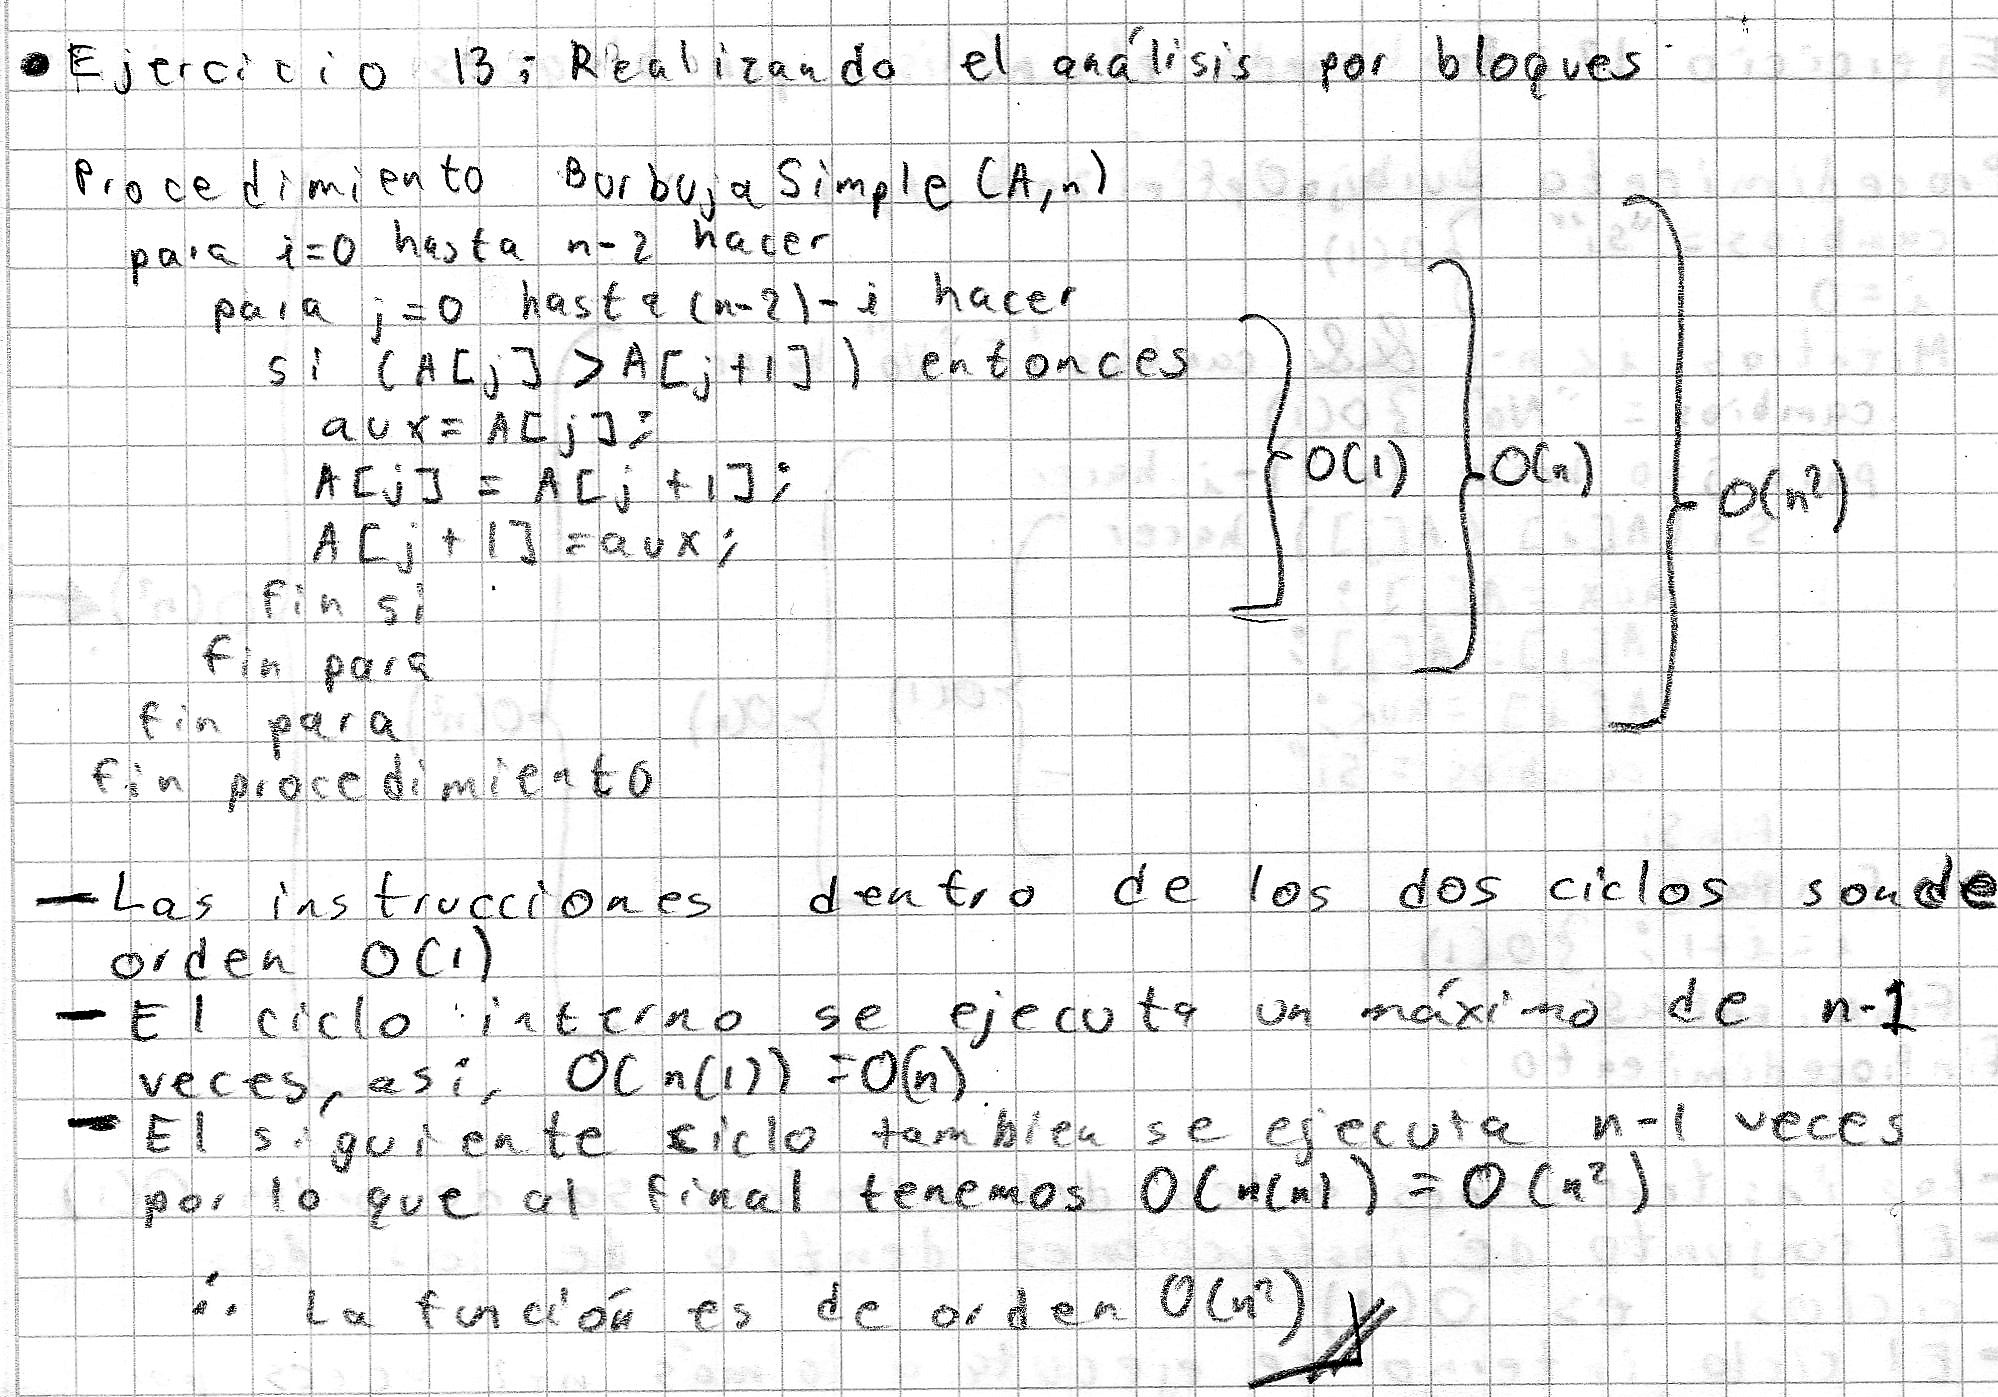 • Ejercicio 13: Realizando el análisis por bloques
Procedimiento BurbujaSimple (A,n)
para i=0 hasta n-2 hacer
para j=0 hasta (n-2)-i hacer
si (A[j] > A[j+1]) entonces
aux= A[j];
A[j] = A[j+1];
A[j+1] =aux;
fin si
fin para
fin para
fin procedimiento
O(1)
O(n)
O(n²)
- Las instrucciones dentro de los dos ciclos son de
orden O(1)
- El ciclo interno se ejecuta un máximo de n-1
veces, asi, O(n(1)) = O(n)
- El siguiente ciclo tambien se ejecuta n-1 veces
por lo que al final tenemos O(n(n)) = O(n²)
∴ La función es de orden O(n²)